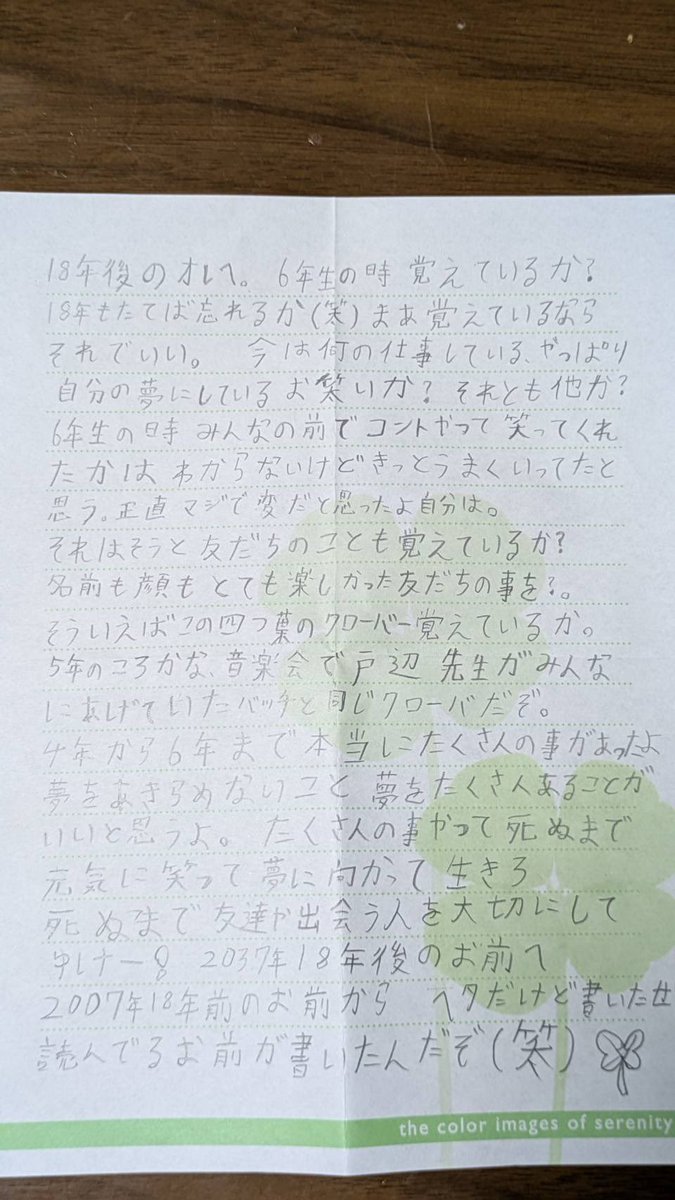 18年後のオレへ。 6年生の時 覚えているか?
18年もたてば忘れるか(笑)まぁ覚えているなら
それでいい。 今は何の仕事している、やっぱり
自分の夢にしているお笑いか? それとも他か?
6年生の時 みんなの前でコントやって笑ってくれ
たかは わからないけどきっとうまくいってたと
思う。正直マジで変だと思ったよ自分は。
それはそうと友だちのことも覚えているか?
名前も顔もとても楽しかった友だちの事を?。
そういえばこの四つ葉のクローバー覚えているか。
5年のころかな、音楽会で戸辺先生がみんな
にあげていたバッチと同じクローバだぞ。
4年から6年まで本当にたくさんの事があったよ
夢をあきらめないこと 夢をたくさんあることが
いいと思うよ。 たくさんの事やって死ぬまで
元気に笑って夢に向かって生きろ
死ぬまで友達や出会う人を大切にして
2037年18年後のお前へ
2007年18年前のお前から ヘタだけど書いたせ
読んでるお前が書いたんだぞ(笑)
the color images of serenity